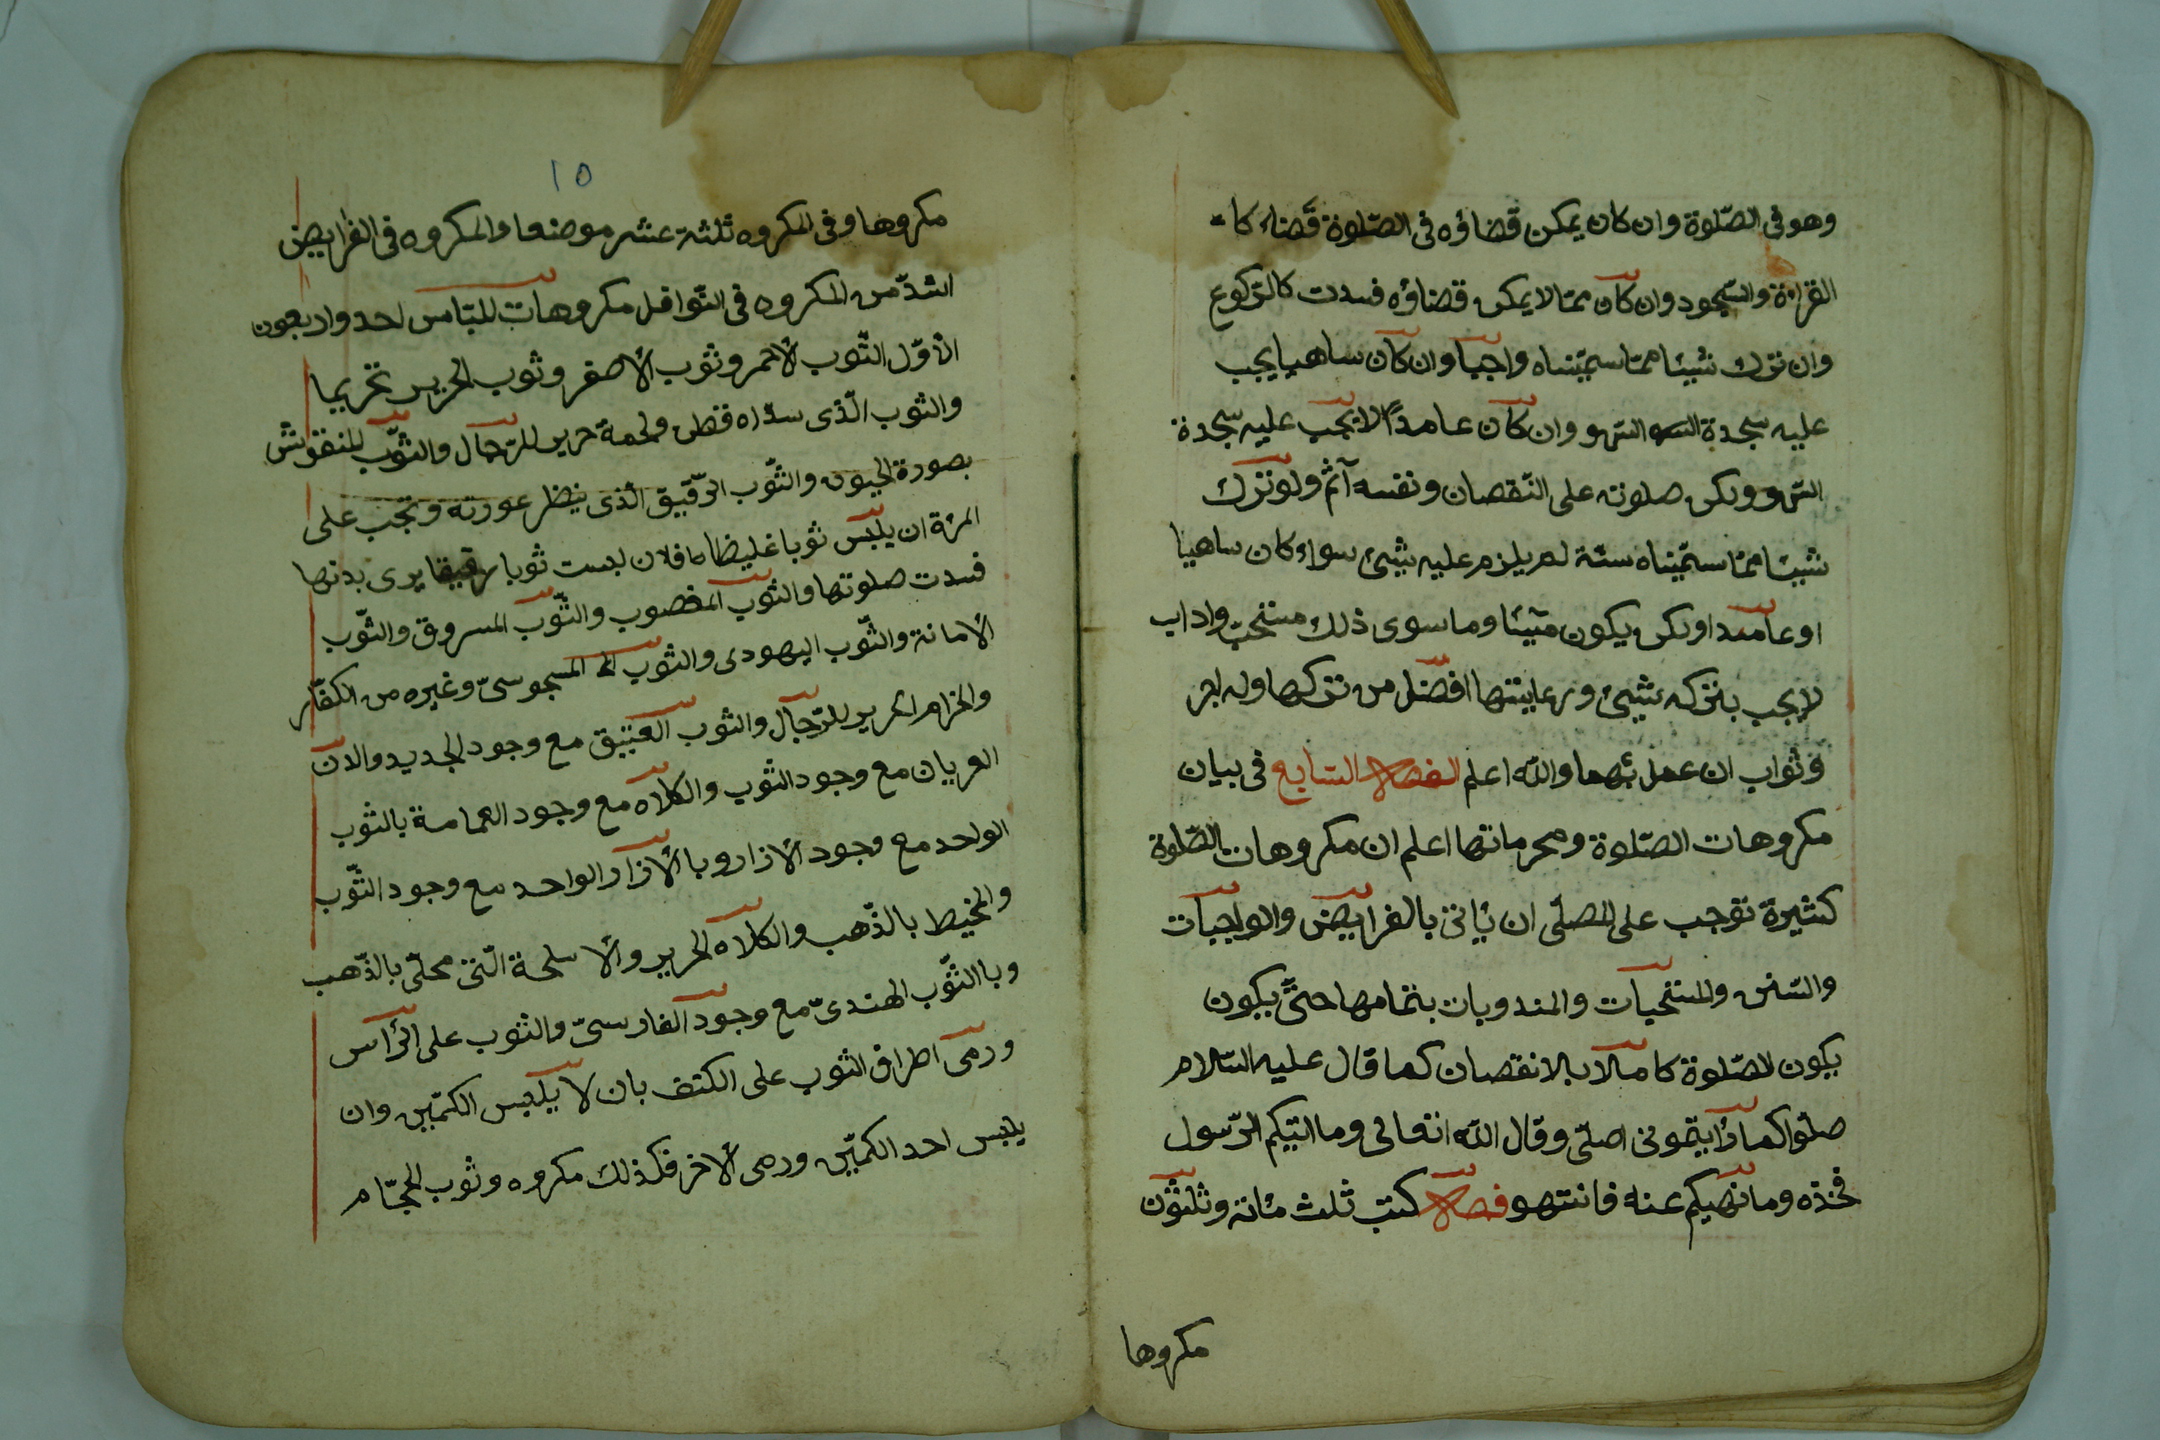 وهو فى الصّلوة وان كان يمكن قضاؤه فى الصّلوة قضاء كا
القراءة والسّجود وان كان ممّا لا يمكن قضاؤه فسدت كالرّكوع
وان ترك شيئا ممّا سمّيناه واجبا وان كان ساهيا يجب
عليه سجدة السهو السّهو وان كان عامداً لا يجب عليه سجدة
السّهو ولكن صلوته على النّقصان ونفسه آثم ولو ترك
شيئا ممّا سمّيناه سنّة لم يلزم عليه شيئ سواء كان ساهيا
او عامدا ولكن يكون مسيئا وما سوى ذلك مستحبّ واداب
لا يجب بتركه شيئ ورعايتها افضل من تركها وله اجر
وثواب ان عمل بهما والله اعلم الفصل السّابع فى بيان
مكروهات الصّلوة ومحرماتها اعلم ان مكروهات الصّلوة
كثيرة توجب على المصلّى ان يأتى بالفرايض والواجبات
والسّنن والمستحبات والمندوبات بتمامها حتّى يكون
يكون الصّلوة كاملا بلا نقصان كما قال عليه السّلام
صلّوا كما رأيتمونى اصلّى وقال الله تعالى وما اتيكم الرّسول
فخذه وما نهيكم عنه فانتهو فصل كتب ثلث مائة وثلثون
مكروها
١٥
مكروها وفى المكروه ثلثة عشر موضعا والمكروه فى الفرايض
اشدّ من المكروه فى النّوافل مكروهات اللّباس احد واربعون
الأوّل الثّوب الأحمر وثوب الأصفر وثوب الحرير تحريما
والثوب الّذى سدّاه قطن ولحمة حرير للرّجال والثوّب المنقوش
بصورة الحيون والثّوب الرّقيق الّذى ينظر عورته وتجب على
المرئة ان يلبس ثوبا غليظا فلان لبست ثوبا رقيقا يرى بدنها
فسدت صلوتها والثوب المغصوب والثّوب المسروق والثّوب
الأمانة والثّوب اليهودى والثوب المجوسىّ وغيره من الكفّار
والحزام الحرير للرّجال والثوب العتيق مع وجود الجديد والان
العريان مع وجود الثوب والكلاه مع وجود العمامة بالثوب
الواحد مع وجود الأزار وبا الأزار الواحد مع وجود الثّوب
والمخيط بالذّهب والكلاه الحرير والأسلحة الّتى محلّى بالذّهب
وبا الثّوب الهندىّ مع وجود الفارسىّ والثوب على الرّأس
ورمى اطراف الثوب على الكتف بان لا يلبس الكمّين وان
يلبس احد الكمّين ورمى الأخر فكذلك مكروه وثوب الحجّام